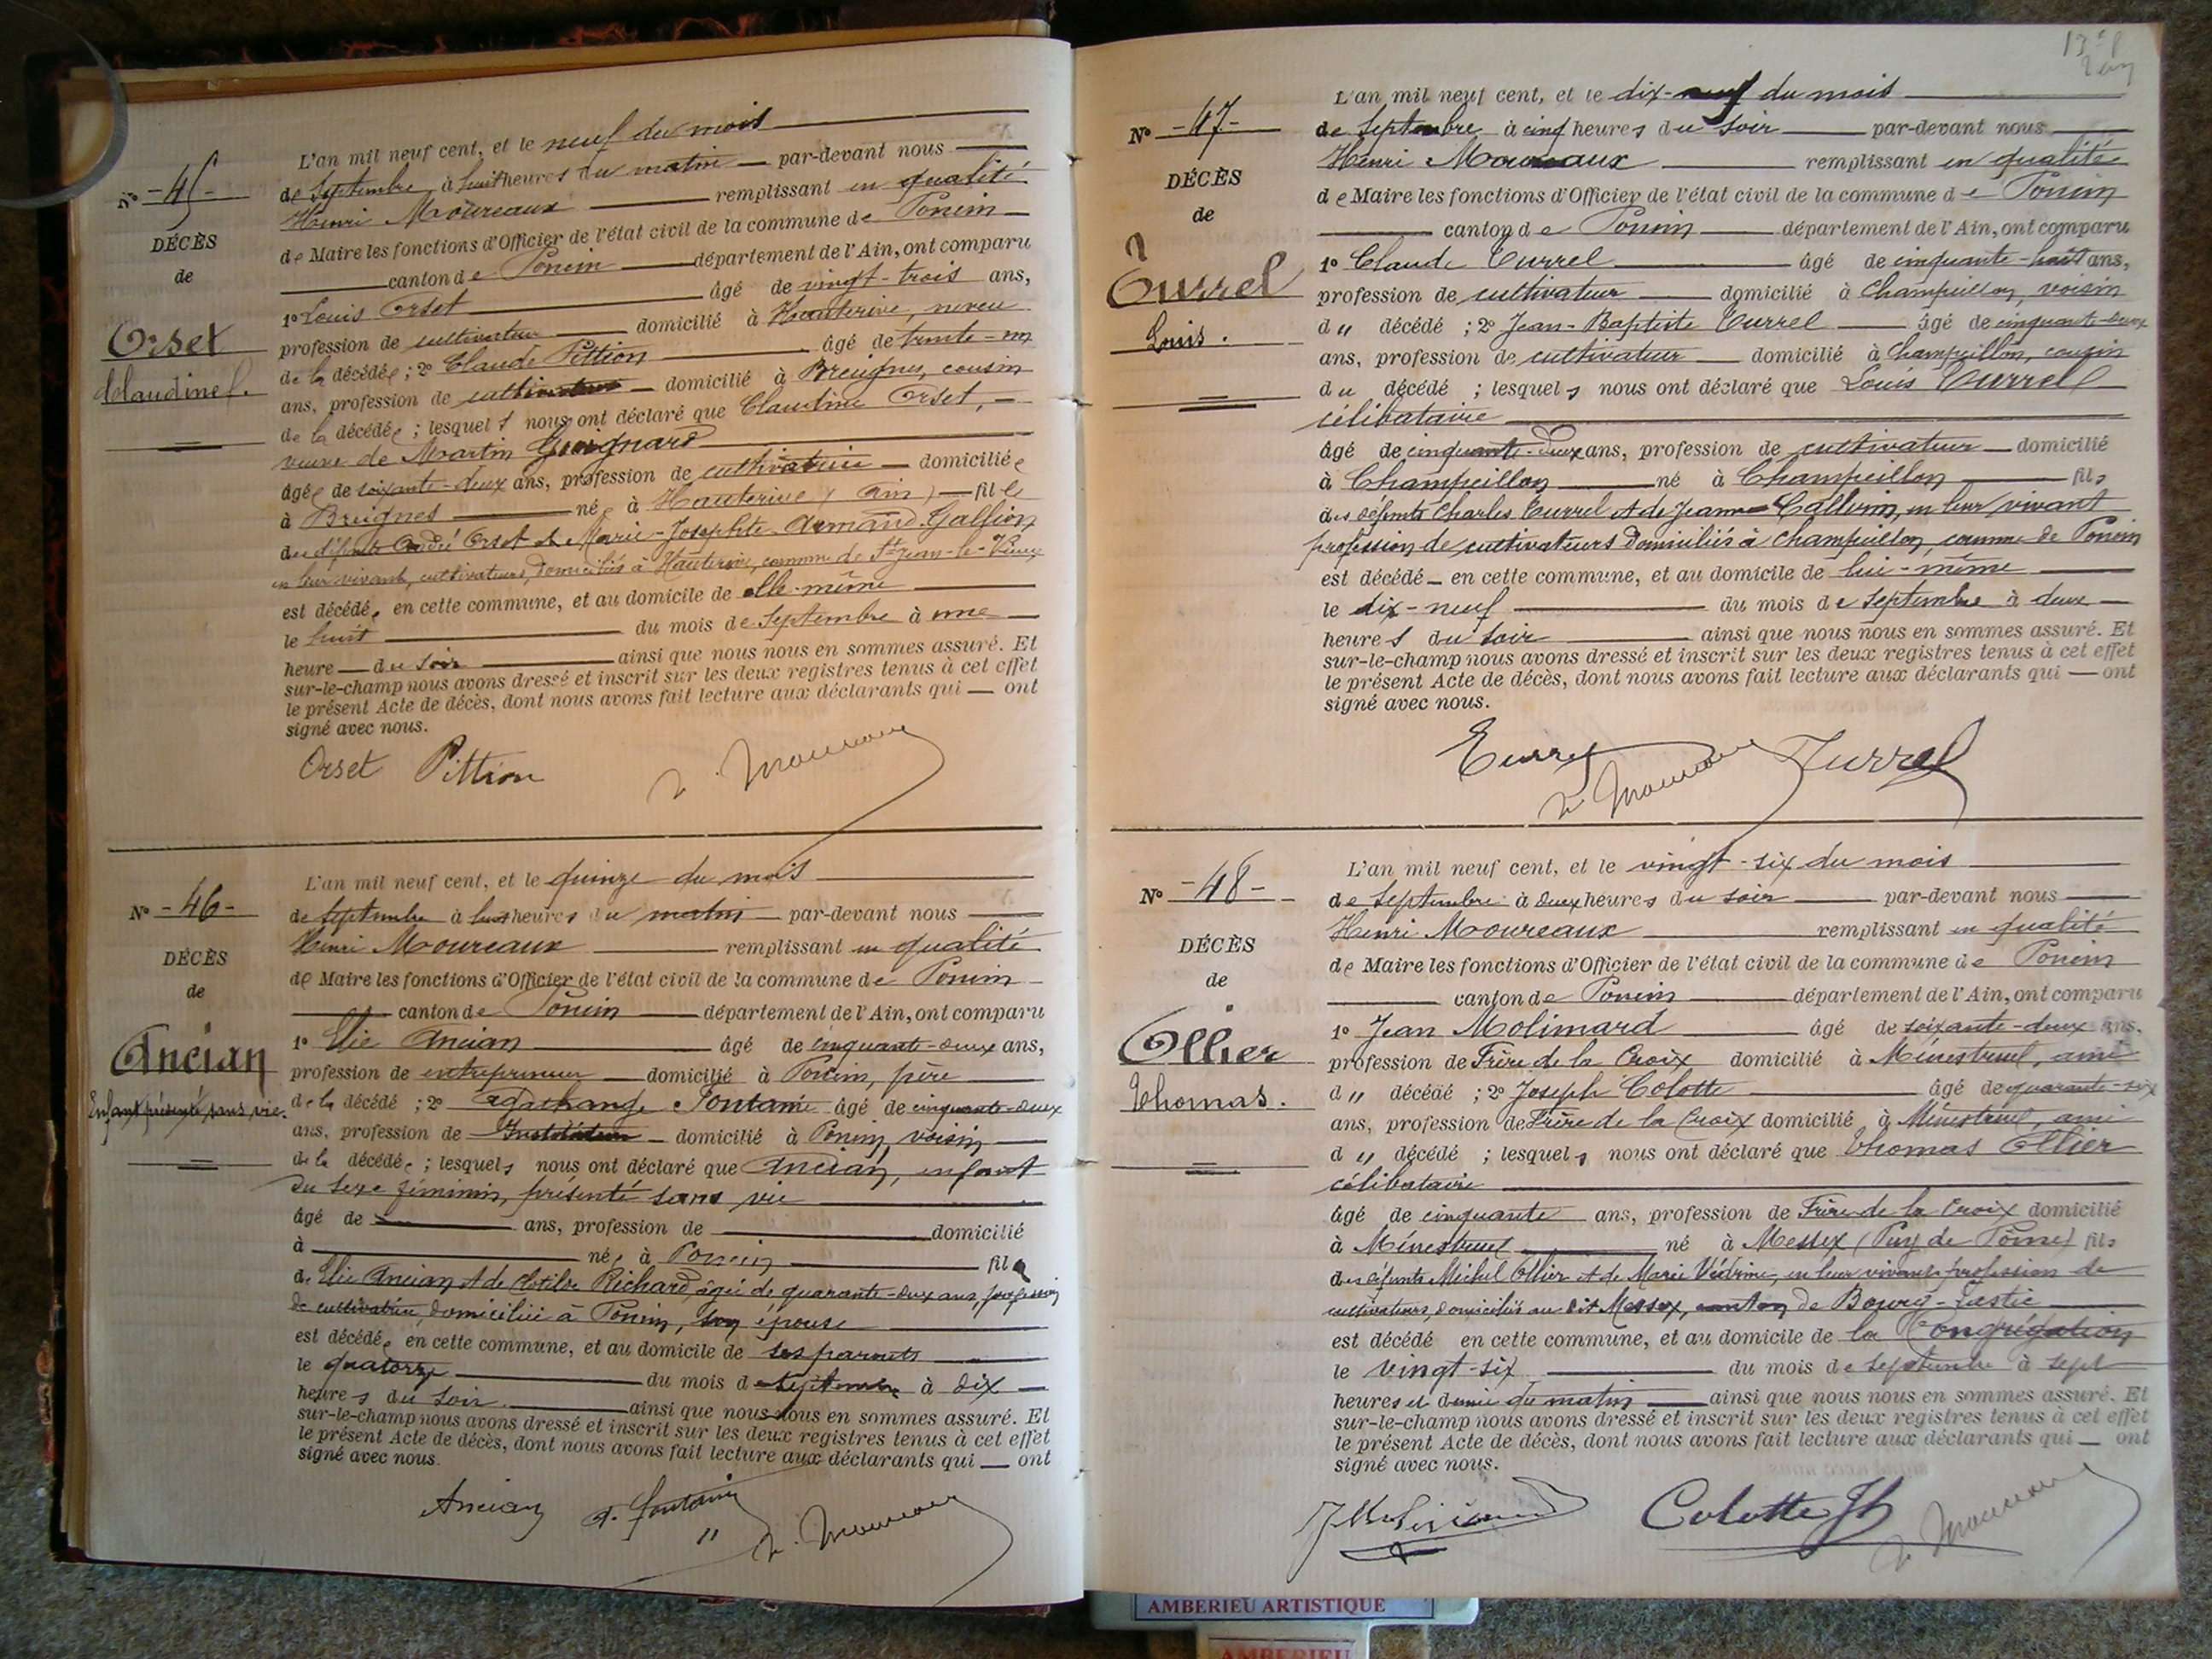 N° -45-
DÉCÈS
de
Orset
Claudine f.
L'an mil neuf cent, et le neuf du mois
de Septembre à huit heures du matin par-devant nous
Henri Moureaux remplissant en qualité
de Maire les fonctions d'Officier de l'état civil de la commune de Poncin
canton de Poncin département de l'Ain, ont comparu
1° Louis Orset âgé de vingt-trois ans,
profession de cultivateur domicilié à Hauterive, neveu
de la décédée ; 2° Claude Pittion âgé de trente-un
ans, profession de cultivateur domicilié à Breignes, cousin
de la décédée ; lesquels nous ont déclaré que Claudine Orset,
veuve de Martin Guignard
âgée de soixante-deux ans, profession de cultivatrice domiciliée
à Breignes née à Hauterive (Ain) fille
des défunts André Orset et Marie-Josephte Armand Gallion
en leur vivant, cultivateurs, domiciliés à Hauterive, commune de St Jean-le-Vieux
est décédée en cette commune, et au domicile de elle-même
le huit du mois de Septembre à une
heure du soir ainsi que nous nous en sommes assuré. Et
sur-le-champ nous avons dressé et inscrit sur les deux registres tenus à cet effet
le présent Acte de décès, dont nous avons fait lecture aux déclarants qui ont
signé avec nous.
Orset Pittion h. Moureaux
N° -46-
DÉCÈS
de
Ancian
Enfant présenté sans vie.
L'an mil neuf cent, et le quinze du mois
de Septembre à huit heures du matin par-devant nous
Henri Moureaux remplissant en qualité
de Maire les fonctions d'Officier de l'état civil de la commune de Poncin
canton de Poncin département de l'Ain, ont comparu
1° Elie Ancian âgé de cinquante-deux ans,
profession de entrepreneur domicilié à Poncin, père
de la décédé ; 2° Agathange Fontaine âgé de cinquante-deux
ans, profession de Instituteur domicilié à Poncin, voisin
de la décédée ; lesquels nous ont déclaré que Ancian, enfant
du sexe féminin, présenté sans vie
âgé de ans, profession de domicilié
à née à Poncin fil
de Elie Ancian et de Clotilde Richard, âgée de quarante-deux ans, profession
de cultivatrice, domiciliée à Poncin, son épouse
est décédée en cette commune, et au domicile de ses parents
le quatorze du mois de Septembre à dix
heures du soir ainsi que nous nous en sommes assuré. Et
sur-le-champ nous avons dressé et inscrit sur les deux registres tenus à cet effet
le présent Acte de décès, dont nous avons fait lecture aux déclarants qui ont
signé avec nous.
Ancian A. Fontaine h. Moureaux
N° -47-
DÉCÈS
de
Turrel
Louis.
L'an mil neuf cent, et le dix-neuf du mois
de Septembre à cinq heures du soir par-devant nous
Henri Moureaux remplissant en qualité
de Maire les fonctions d'Officier de l'état civil de la commune de Poncin
canton de Poncin département de l'Ain, ont comparu
1° Claude Turrel âgé de cinquante-huit ans,
profession de cultivateur domicilié à Champeillon, voisin
du décédé ; 2° Jean-Baptiste Turrel âgé de cinquante-deux
ans, profession de cultivateur domicilié à Champeillon, cousin
du décédé ; lesquels nous ont déclaré que Louis Turrel
célibataire
âgé de cinquante-deux ans, profession de cultivateur domicilié
à Champeillon né à Champeillon fils
des défunts Charles Turrel et de Jeanne Callerin, en leur vivant
profession de cultivateurs domiciliés à Champeillon, commune de Poncin
est décédé en cette commune, et au domicile de lui-même
le dix-neuf du mois de Septembre à deux
heures du soir ainsi que nous nous en sommes assuré. Et
sur-le-champ nous avons dressé et inscrit sur les deux registres tenus à cet effet
le présent Acte de décès, dont nous avons fait lecture aux déclarants qui ont
signé avec nous.
Turrel h. Moureaux Turrel
N° -48-
DÉCÈS
de
Ollier
Thomas.
L'an mil neuf cent, et le vingt-six du mois
de Septembre à deux heures du soir par-devant nous
Henri Moureaux remplissant en qualité
de Maire les fonctions d'Officier de l'état civil de la commune de Poncin
canton de Poncin département de l'Ain, ont comparu
1° Jean Molimard âgé de soixante-deux ans,
profession de Frère de la Croix domicilié à Ménestruel, ami
du décédé ; 2° Joseph Colotte âgé de quarante-six
ans, profession de Frère de la Croix domicilié à Ménestruel, ami
du décédé ; lesquels nous ont déclaré que Thomas Ollier
célibataire
âgé de cinquante ans, profession de Frère de la Croix domicilié
à Ménestruel né à Messex (Puy de Dôme) fils
des défunts Michel Ollier et de Marie Védrine, en leur vivant profession de
cultivateurs, domiciliés au dit Messex, canton de Bourg-Lastic
est décédé en cette commune, et au domicile de la Congrégation
le vingt-six du mois de septembre à sept
heures et demie du matin ainsi que nous nous en sommes assuré. Et
sur-le-champ nous avons dressé et inscrit sur les deux registres tenus à cet effet
le présent Acte de décès, dont nous avons fait lecture aux déclarants qui ont
signé avec nous.
J Molimard Colotte Jh h. Moureaux
AMBERIEU ARTISTIQUE
AMBERIEU